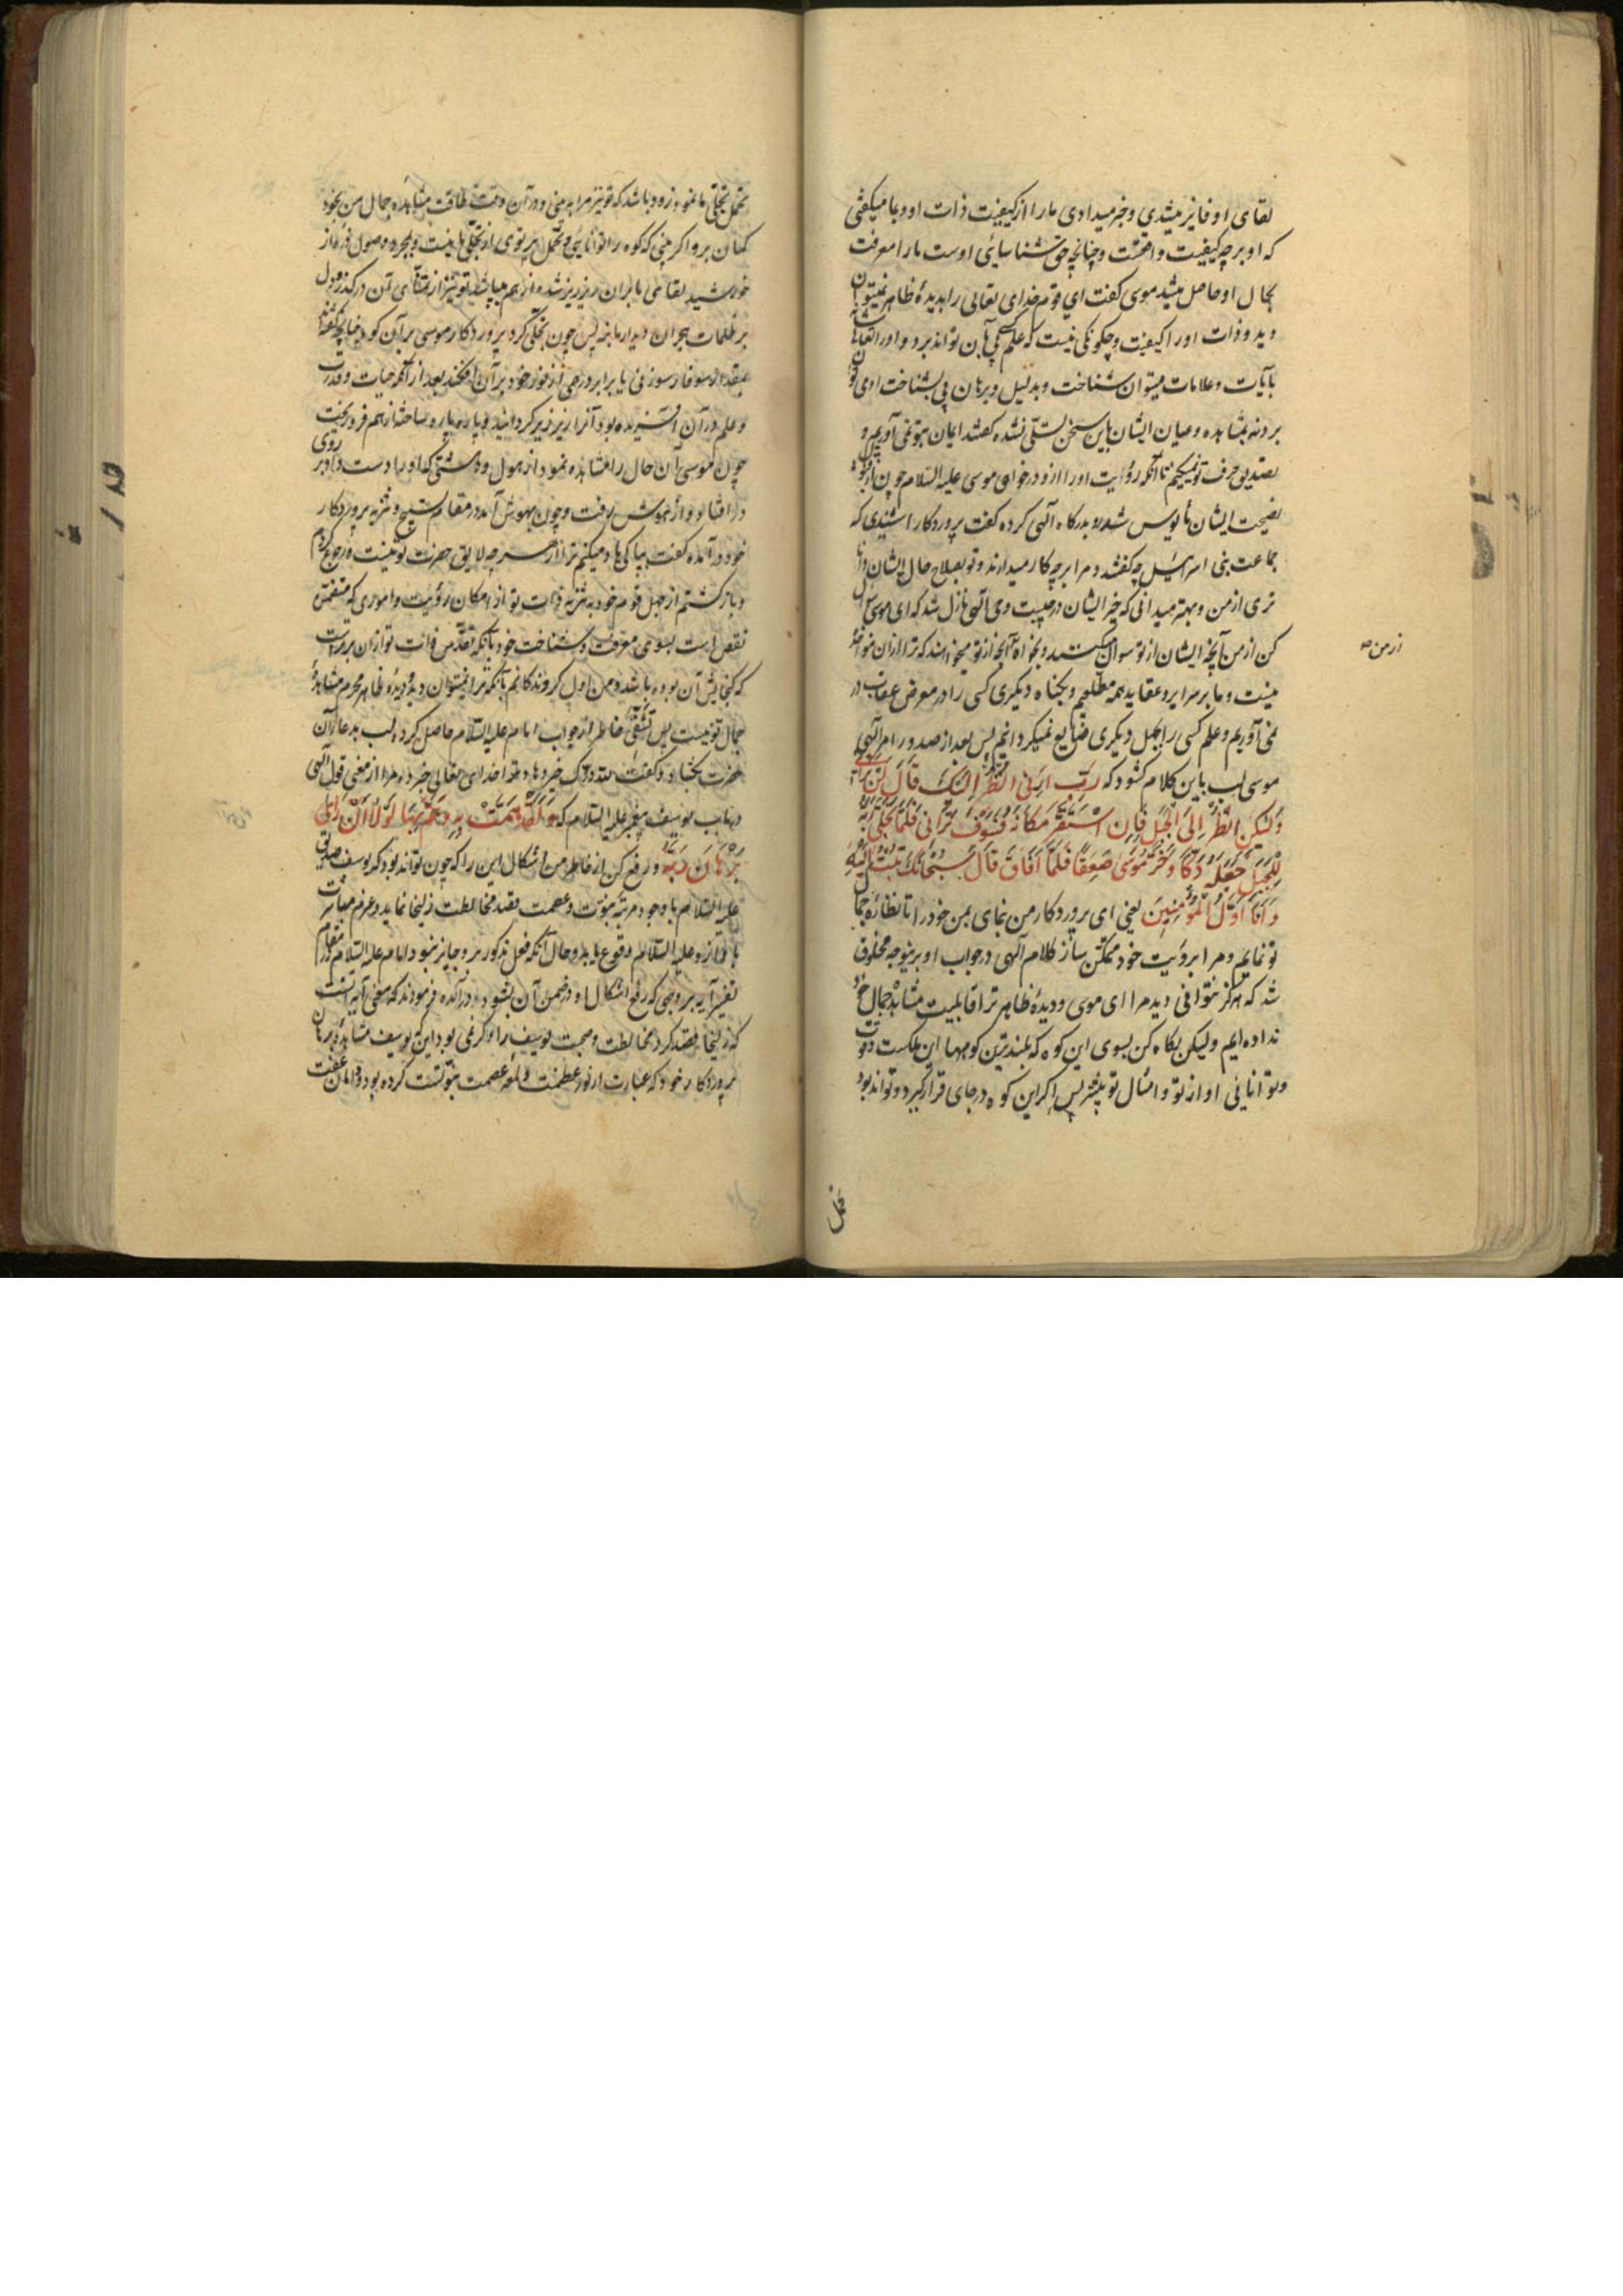 لقای او فایز میشدی و خبر میدادی ما را از کیفیت ذات او و با میکفتی
که او بر چه کیفیت واقعست و چنانچه حق شناسایی اوست ما را معرفت
بحال او حاصل میشد موسی کفت ای قوم خدای تعالی را بدیدهٔ ظاهر نمیتوان
دید و ذات او را کیفیت و چکونکی نیست که علم کسی بآن تواند برد و او را
بآیات و علامات میتوان شناخت و بدلیل و برهان پی بشناخت او می توان
برد نه بمشاهده و عیان ایشان باین سخن تسلی نشده کفتند ایمان بتو نمی آوریم و
تصدیق حرف تو نمیکنیم تا آنکه رؤیت او را ازو درخواهی موسی علیه السلام چون از
نصیحت ایشان مأیوس شد رو بدرکاه آلهی کرده کفت پروردکارا شنیدی که
جماعت بنی اسرائیل چه کفتند و مرا بر چه کار میدارند و تو بصلاح حال ایشان دانا
تری از من و بهتر میدانی که خیر ایشان در چیست وحی آلهی نازل شد که ای موسی سؤال
کن از من آنچه ایشان از تو سؤال میکنند و بخواه آنچه از تو میخواهند که ترا از آن مؤاخذه
از من
نیست و ما بر سرایر و عقاید همه مطلعیم و بکناه دیکری کسی را در معرض عقاب در
نمی آوریم و علم کسی را بجهل دیکری ضایع نمیکردانیم پس بعد از صدور امر آلهی
موسی لب باین کلام کشود که رَبِّ اَرِنی اَنْظُرْ اِلَیْكَ قالَ لَنْ تَرانی
وَلٰکِنِ انْظُرْ اِلَی الْجَبَلِ فَاِنِ اسْتَقَرَّ مَکانَهُ فَسَوْفَ تَرانی فَلَمّا تَجَلّی رَبُّهُ
لِلْجَبَلِ جَعَلَهُ دَکّاً وَخَرَّ مُوسی صَعِقاً فَلَمّا اَفاقَ قالَ سُبْحانَكَ تُبْتُ اِلَیْكَ
وَاَنَا اَوَّلُ الْمُؤْمِنینَ یعنی ای پروردکار من بنمای بمن خود را تا نظارهٔ جمال
تو نمایم و مرا برؤیت خود ممکن ساز کلام آلهی در جواب او برینوجه مخلوق
شد که هرکز نتوانی دید مرا ای موسی و دیدهٔ ظاهر ترا قابلیت مشاهدهٔ جمال خود
نداده ایم ولیکن نکاه کن بسوی این کوه که بلندترین کوهها این ملکست و قوت
و توانائی او از تو و امثال تو بیشتر پس اکر این کوه در جای قرار کیرد و تواند بود
تحمل تجلی ما نمود زود باشد که تو نیز مرا به بینی و در آن وقت طاقت مشاهده جمال من بخود
کمان برو اکر بینی که کوه را توانایی و تحمل پرتوی از تجلی ما نیست و بمجرد وصول ذرهٔ از
خورشید لقا می بابران ریز ریز شده از هم میپاشد تو نیز از تمنای آن درکذر و دل
بر ظلمات هجران دیدار ما بنه پس چون تجلی کرد پروردکار موسی بر آن کوه چنانچه کفته اند
بمقدار سوفار سوزنی یا برابر درهمی از نور خود بر آن افکند بعد از آنکه حیات و قدرت
و علم در آن آفریده بود آنرا ریز ریز کردانید و پاره پاره ساخته از هم فرو ریخت
چون موسی آن حال را مشاهده نمود از هول و دهشتی که او را دست داد بر روی
در افتاد و از هوش رفت و چون بهوش آمد در مقام تسبیح و تنزیه پروردکار
خود درآمده کفت بپاکی یاد میکنم ترا از هر چه لایق حضرت تو نیست و رجوع کردم
و باز کشتم از جهل قوم خود به تنزیه ذات تو از امکان رؤیت و اموری که متضمن
نقص است بسوی معرفت و شناخت خود بآنکه تقدس ذات تو از آن برترست
که کنجایش آن بوده باشد و من اول کروندکانم بآنکه ترا نمیتوان دید و دیدهٔ ظاهر محرم مشاهدهٔ
جمال تو نیست پس تشفی خاطر از جواب امام علیه السلام حاصل کرده لب بدعای آن
حضرت بکشاد و کفت لله درك خیر دهاد ترا خدای تعالی خبر ده مرا از معنی قول آلهی
در باب یوسف پیغمبر علیه السلام که وَلَقَدْ هَمَّتْ بِهِ وَهَمَّ بِها لَوْلا اَنْ رَأی
بُرْهانَ رَبِّهِ و رفع کن از خاطر من اشکال این را که چون تواند بود که یوسف صدیق
علیه السلام با وجود مرتبهٔ نبوت و عصمت قصد مخالطت زلیخا نماید و عزم مباشرت
با او از و علیه السلام وقوع یابد و حال آنکه فعل مذکور برو جایز نبود امام علیه السلام در مقام
تفسیر آیه بر وجهی که رفع اشکال او در ضمن آن بشود درآمده فرمودند که معنی آیه اینست
که زلیخا قصد کرد مخالطت و صحبت یوسف را و اکر نمی بود این که یوسف مشاهدهٔ برهان
پروردکار خود که عبارت از نور عظمت و لمعهٔ عصمت نبوتست کرده بود و دامان عفت